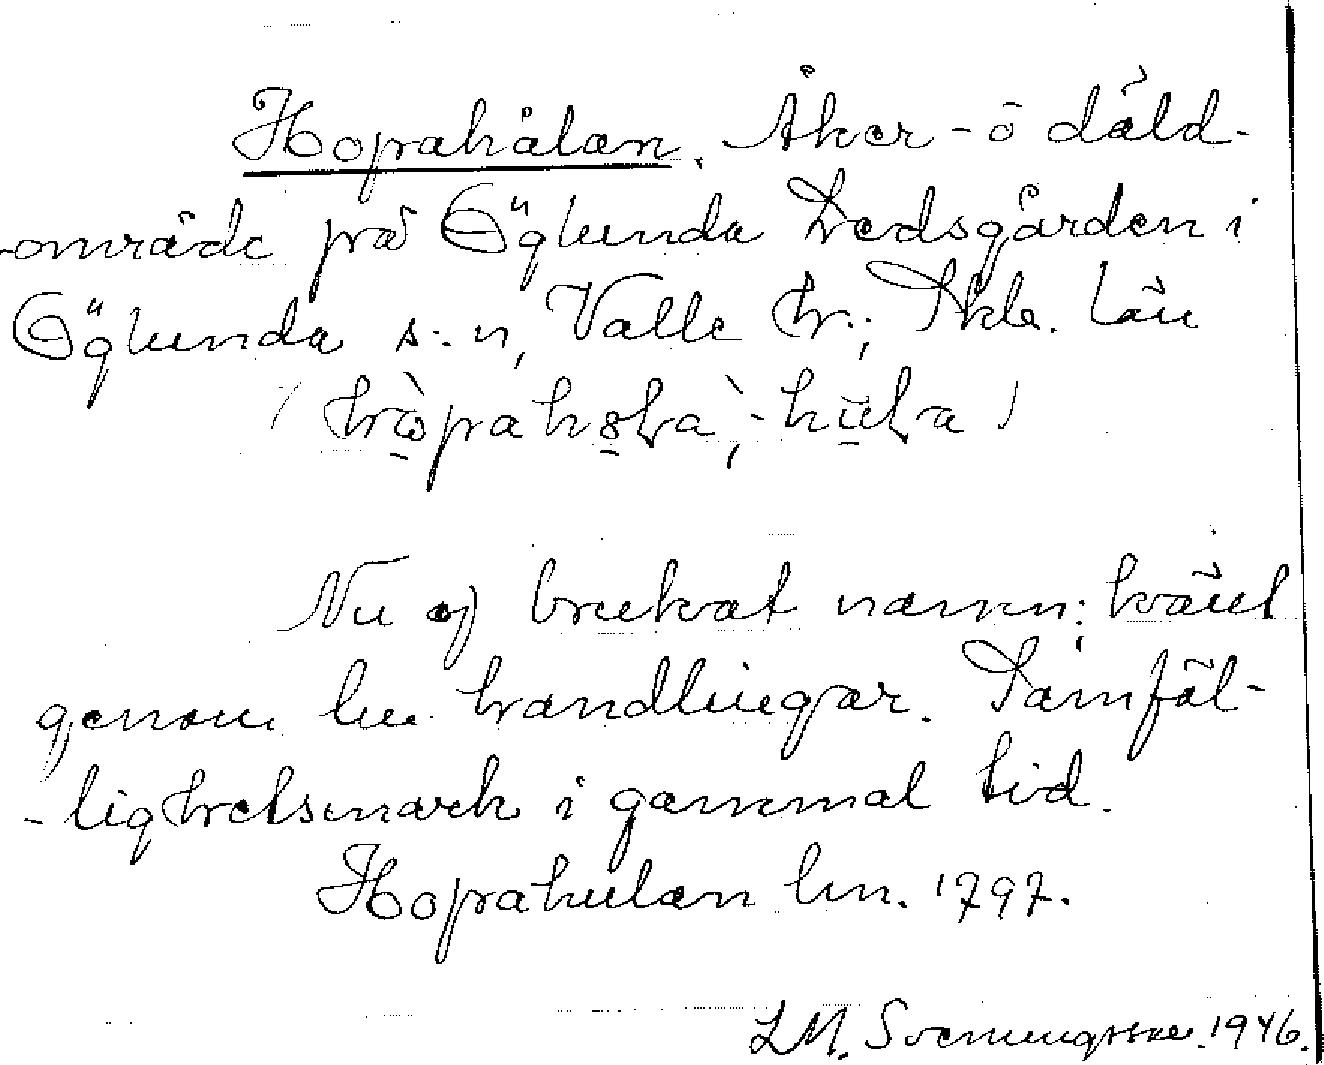 Hopahålan. Åker- o däld-
-område på Öglunda Ledsgården i
Öglunda s:n, Valle hr.; Skb. län
/ hòpahola, -hula /
Nu ej brukat namn; känt
genom lm. handlingar. Samfäl-
-lighetsmark i gammal tid.
Hopahulan lm. 1797.
LM. Svenungsson. 1946.